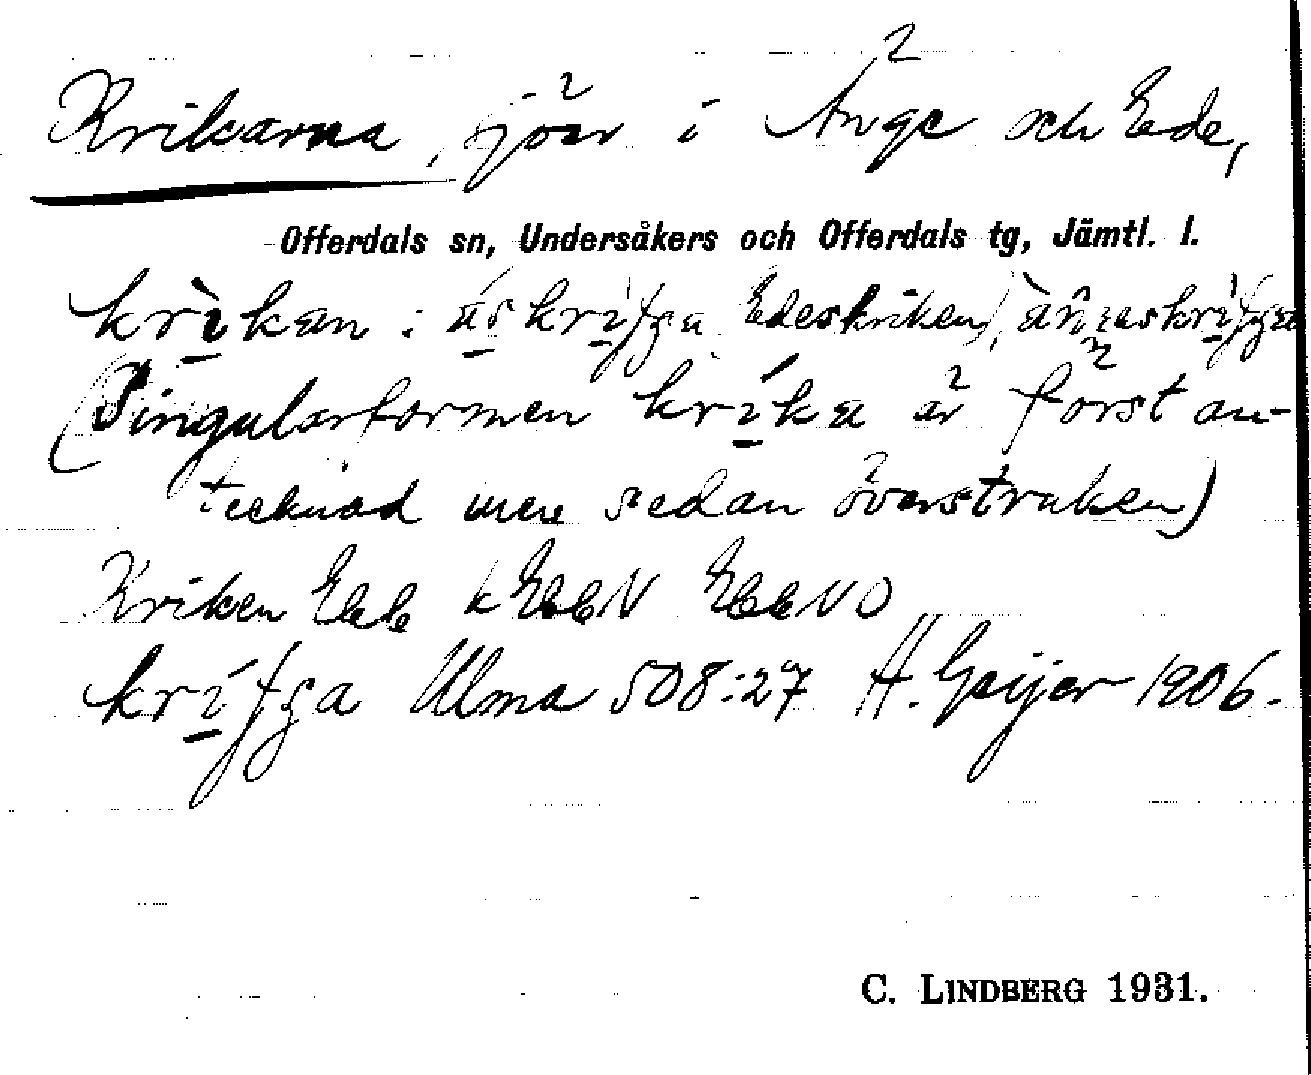 Krikarna, sjöar i Ånge och Ede,
Offerdals sn, Undersåkers och Offerdals tg, Jämtl. l.
krìkan : Edeskriken),
(Singularformen kríka är först an-
tecknad men sedan överstruken)
Kriken
Ulma 508:27 H. Geijer 1906.
C. LINDBERG 1931.